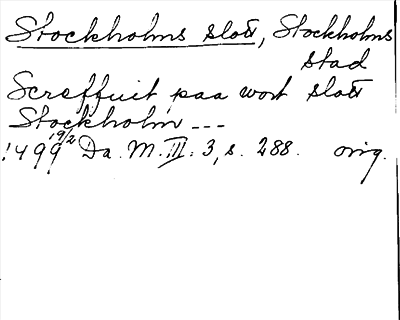 Stockholms slott, Stockholms
stad
Screffuit paa wort slott
Stockholm ---
1499 19/2 Da. M. III: 3, s. 288. orig.